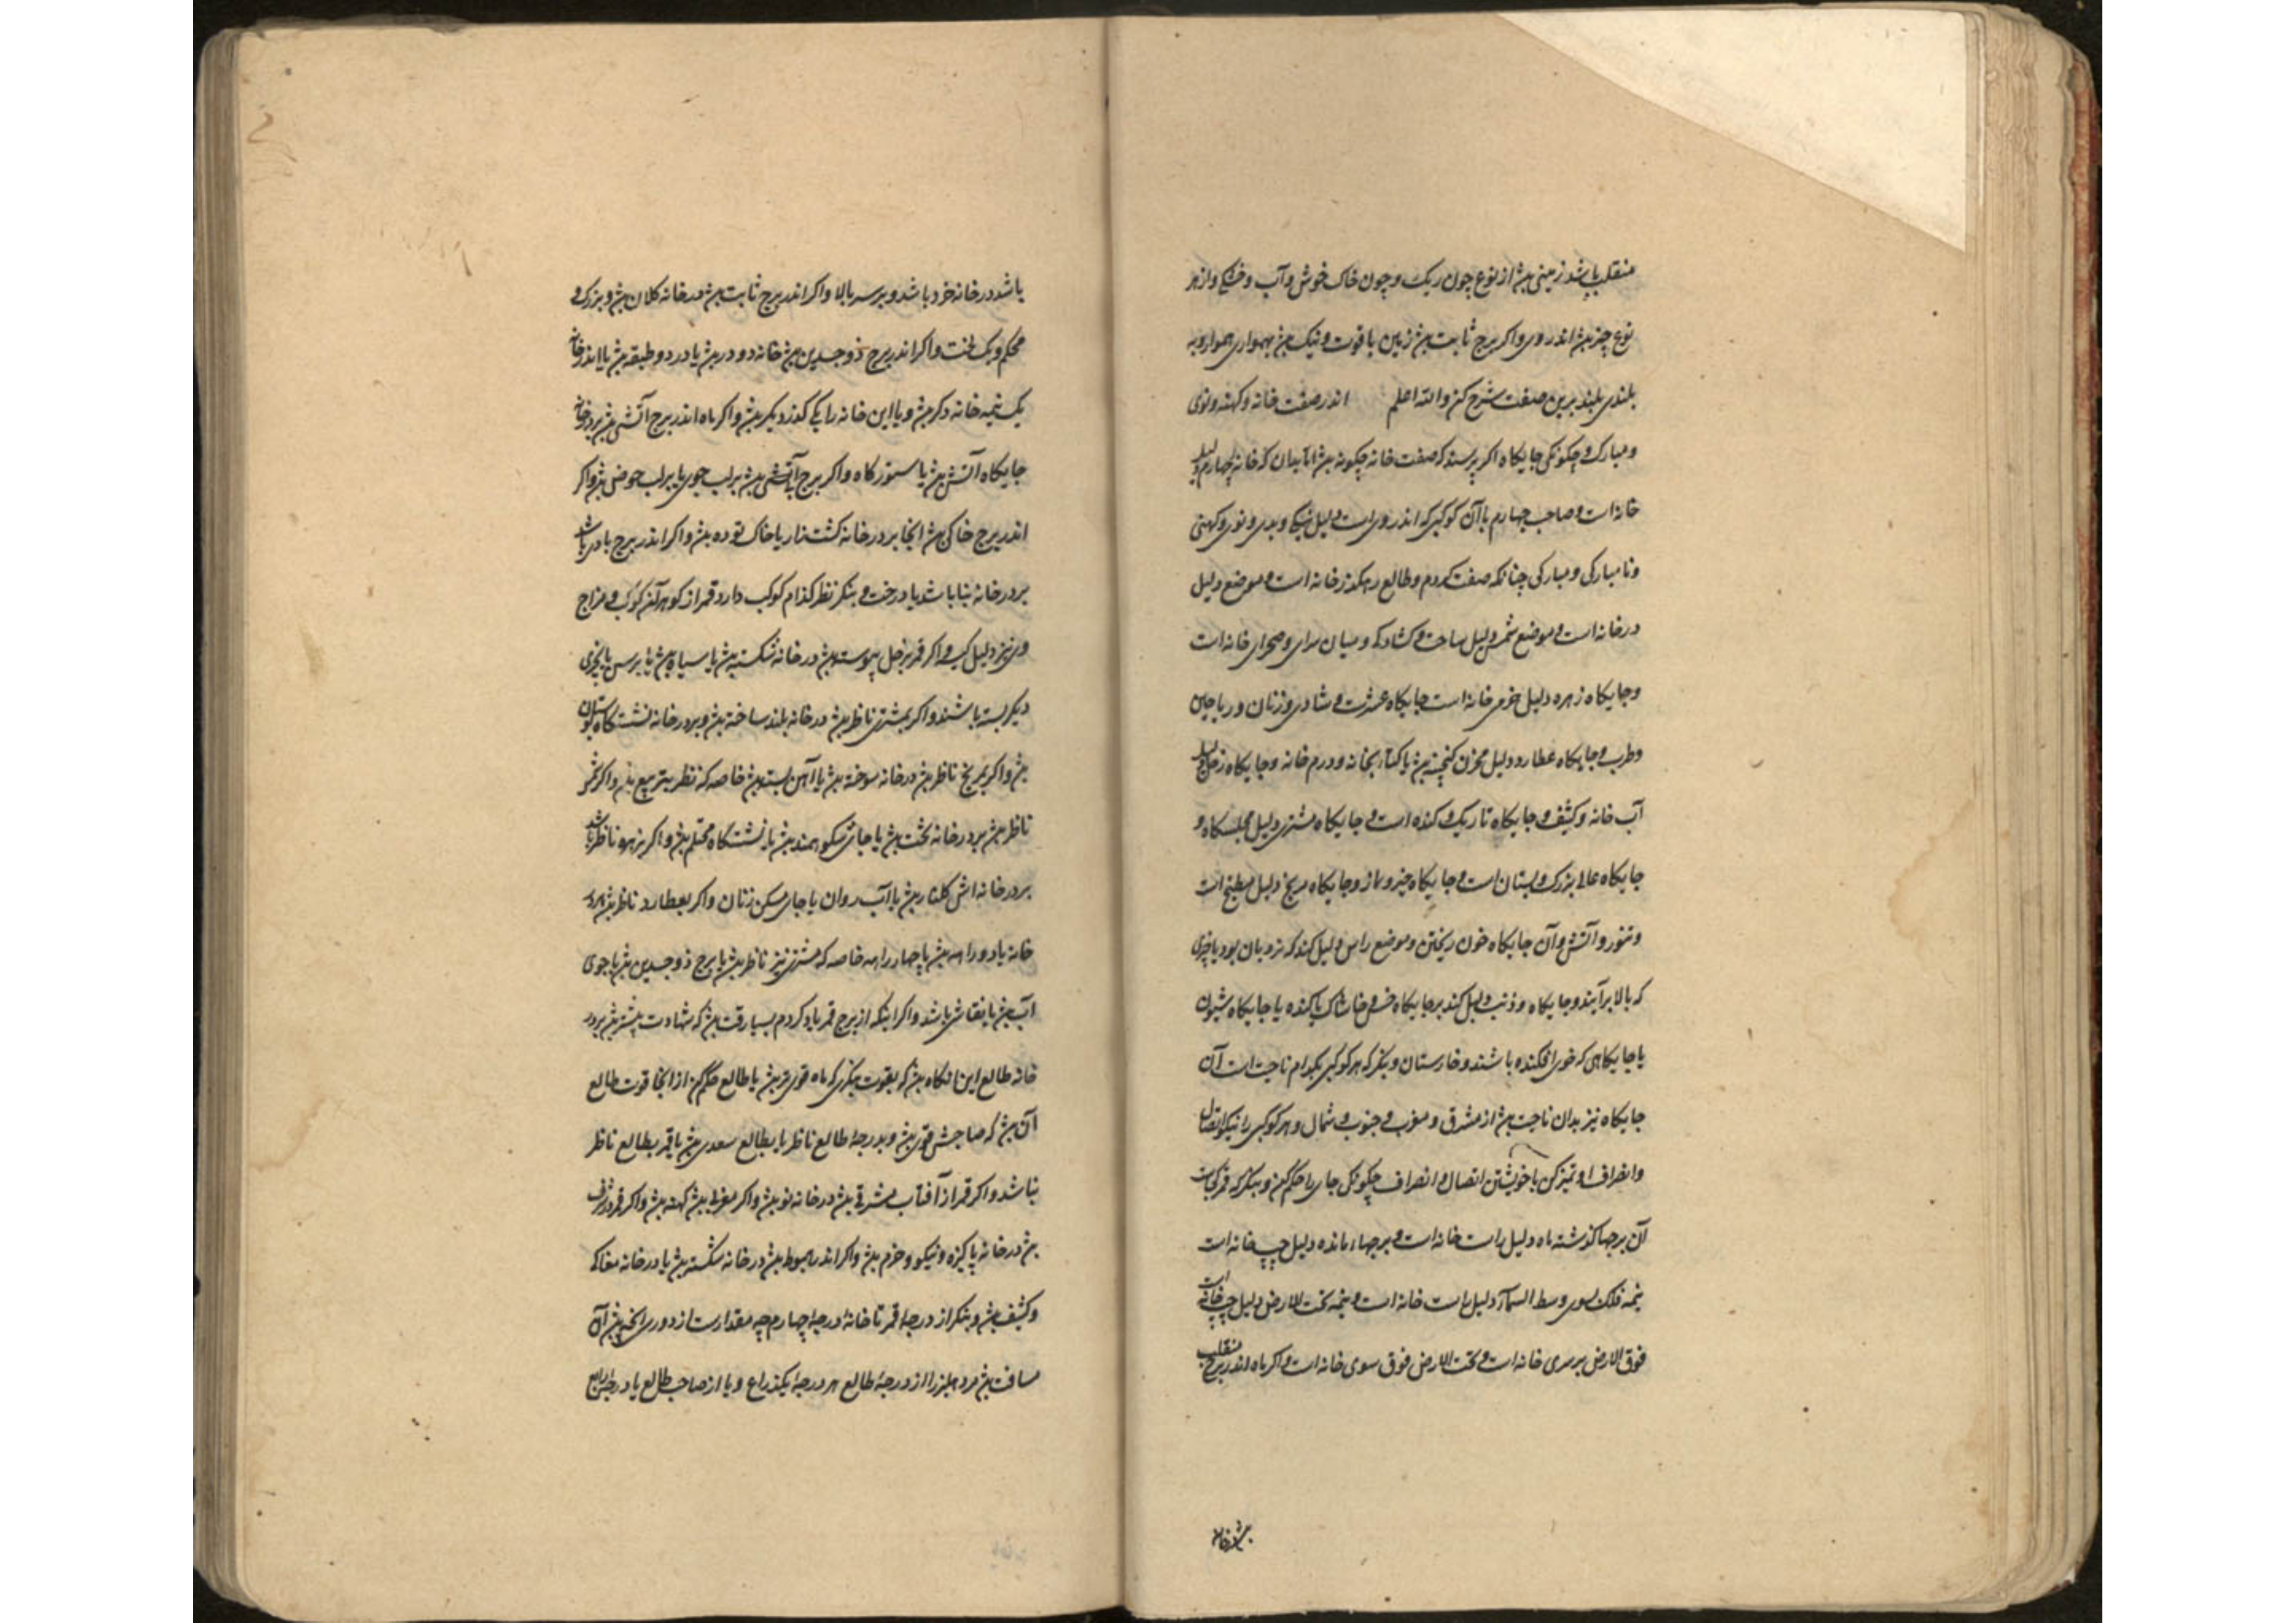 منقلب باشد زمینی بش از نوع چون ریک و چون خاک خوش و آب و خشکی و از هر
نوع چیز بش اندر وی و اکر برج ثابت بش زمین با قوت و نیک بش بهمواری هموار و به
بلندی بلند برین صفت شرح کن والله اعلم اندر صفت خانه و کهنه و نوی
و مبارک و چکونکی جایکاه اکر پرسند که صفت خانه چکونه بش بدان که خانه چهارم دلیل
خانه است و صاحب چهارم با آن کوکبی که اندر وی است دلیل نیکی و بدی و نوی و کهنی
و نامبارکی و مبارکی چنانکه صفت کردم و طالع رهکذر خانه است و موضع دلیل
در خانه است و موضع شمس دلیل ساحت و کشادکی و میان سرای و صحرای خانه است
و جایکاه زهره دلیل خرمی خانه است و جایکاه عشرت و شادی و زنان و ریاحین
و طرب و جایکاه عطارد دلیل مخزن کنجینه بش یا کتابخانه و درم خانه و جایکاه زحل دلیل
آب خانه و کثیف و جایکاه تاریک و کنده است و جایکاه مشتری دلیل مجلسکاه و
جایکاه عالی بزرک و بستان است و جایکاه چیز و جایکاه مریخ دلیل مطبخ است
و تنور و آتش و آن جایکاه خون ریختن و موضع راس دلیل کند که نردبان بود یا چیزی
که بالا برآیند و جایکاه ذنب دلیل کند بر جایکاه خس و خاشاک یا کنده یا جایکاه شیون
یا جایکاهی که خوی افکنده باشند و خارستان و بنکر که هر کوکبی بکدام ناحیت است آن
جایکاه نیز بدان ناحیت بش از مشرق و مغرب و جنوب و شمال و هر کوکبی را نیکو اتصال
و انصراف او تمیز کن با خویشتن اتصال و انصراف چکونکی جای را حکم کن و بنکر که قمر کجاست
آن برجها کذشته ماه دلیل راست خانه است و برجها مانده دلیل چپ خانه است
نیمه فلک سوی وسط السماء دلیل راست خانه است و نیمه تحت الارض دلیل چپ خانه است
فوق الارض برسری خانه است و تحت الارض فوق سوی خانه است و اکر ماه اندر برج منقلب
باشد در خانه خرد باشد و بر سر بالا و اکر اندر برج ثابت بش در خانه کلان بش و بزرک و
محکم و یک لخت و اکر اندر برج ذوجسدین بش خانه دو در بش یا در دو طبقه بش یا اندر خانه
یک نیمه خانه دکر بش و یا این خانه را یکی کذر دیکر بش و اکر ماه اندر برج آتشی بش بر در خانه
جایکاه آتش بش یا ستورکاه و اکر برج آبی بش بر لب جوی یا بر لب حوض بش و اکر
اندر برج خاکی بش آنجا بر در خانه کشت زار یا خاک توده بش و اکر اندر برج بادی باشد
بر در خانه بنا باشد یا درخت و بنکر نظر کدام کوکب دارد قمر از کوهر آن کوکب و مزاج
وی نیز دلیل کیر و اکر قمر بزحل پیوسته بش در خانه شکسته بش یا سیاه بش یا برسن یا چیزی
دیکر بسته باشند و اکر بمشتری ناظر بش در خانه بلند ساخته بش و بر در خانه نشستکاه
بش و اکر بمریخ ناظر بش در خانه سوخته بش یا آهن بسته بش خاصه که نظر بتربیع بش و اکر بشمس
ناظر بش بر در خانه تخت بش یا جای شکوهمند بش یا نشستکاه محتشم بش و اکر بزهره ناظر باشد
بر در خانه اش کلنار بش یا آب روان یا جای مسکن زنان و اکر بعطارد ناظر بش بر در
خانه یا دو راهه بش یا چهار راهه خاصه که مشتری نیز ناظر بش یا برج ذوجسدین بش یا جوی
آب بش یا نقاش باشد و اکر اینکه از برج قمر یاد کردم بسیار وقت بش که شهادت بیشتر بش بر در
خانه طالع این آنکاه بش که بقوت بنکری که ماه قوی تر بش یا طالع حکم کن از آنجا قوت طالع
آن بش که صاحبش قوی بش و بدرجهٔ طالع ناظر یا بطالع سعدی بش یا قمر بطالع ناظر
نباشد و اکر قمر از آفتاب مشرقی بش در خانه نو بش و اکر مغربی بش کهنه بش و اکر قمر در شرف
بش در خانه پاکیزه و نیکو و خرم بش و اکر اندر هبوط بش در خانه شکسته بش یا در خانه مغاکی
و کثیف بش و بنکر از درجهٔ قمر تا خانهٔ درجهٔ چهارم چه مقدارست از دوری آنچه بش آن
مسافت بش مر دهلیز را از درجهٔ طالع هر درجهٔ یکذراع و یا از صاحب طالع یا درجهٔ رابع